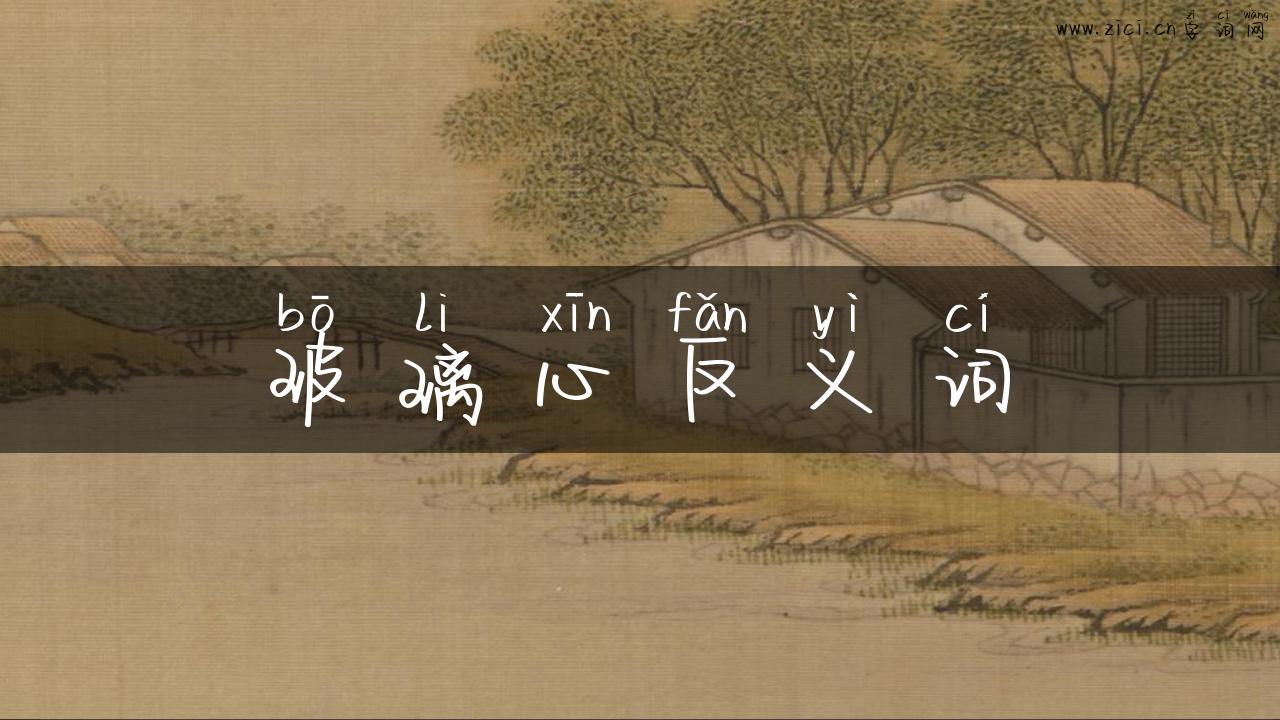 www.zici.cn 字词网
zì cí wǎng
bō li xīn fǎn yì cí
玻璃心反义词